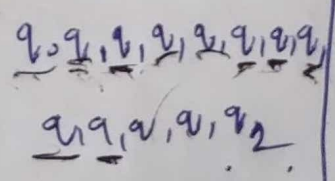 q₀ q₁ q₁ q₁ q₁ q₁ q₁ q₁
q₁ q₁ q₁ q₁ q₂